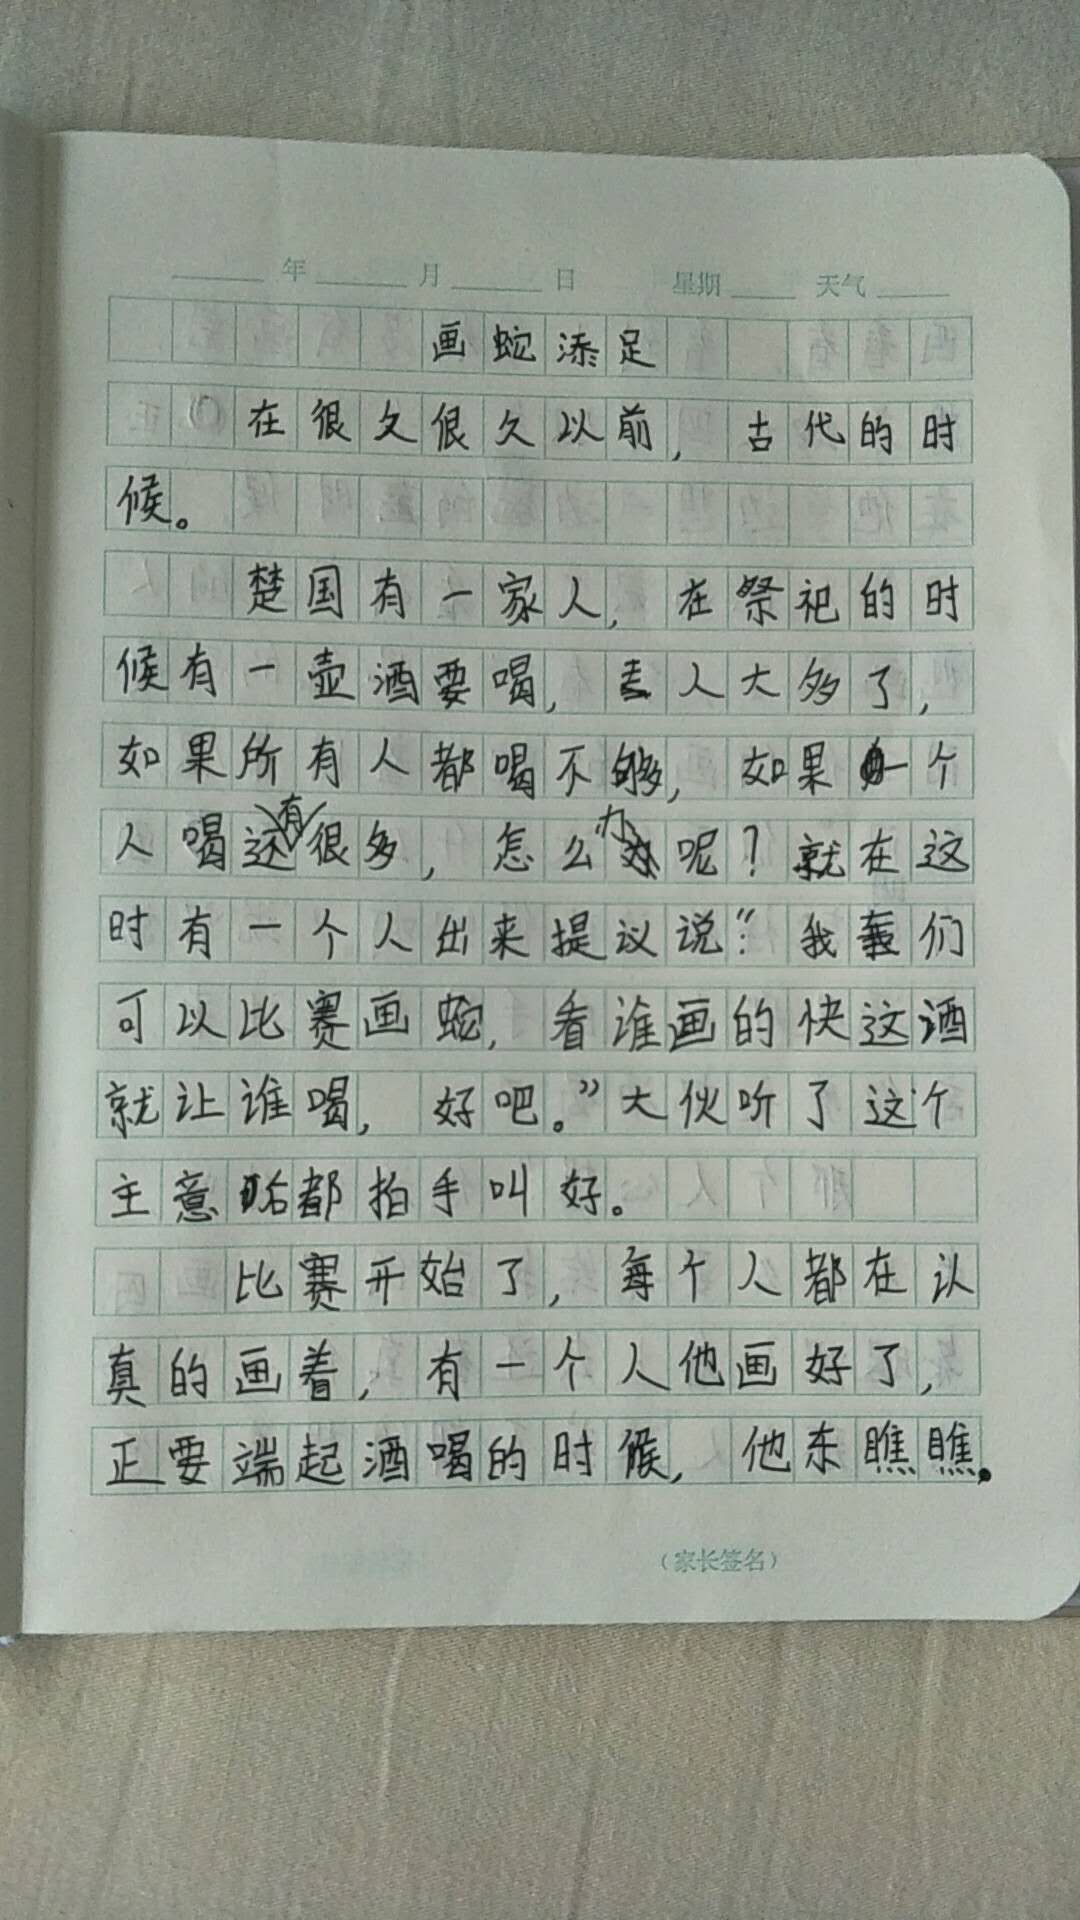 年 月 日 星期 天气
画蛇添足
在很久很久以前，古代的时
候。
楚国有一家人，在祭祀的时
候有一壶酒要喝，人大多了，
如果所有人都喝不够，如果一个
人喝还有很多，怎么办呢？就在这
时有一个人出来提议说：“我们
可以比赛画蛇，看谁画的快这酒
就让谁喝，好吧。”大伙听了这个
主意都拍手叫好。
比赛开始了，每个人都在认
真的画着，有一个人他画好了，
正要端起酒喝的时候，他东瞧瞧。
（家长签名）